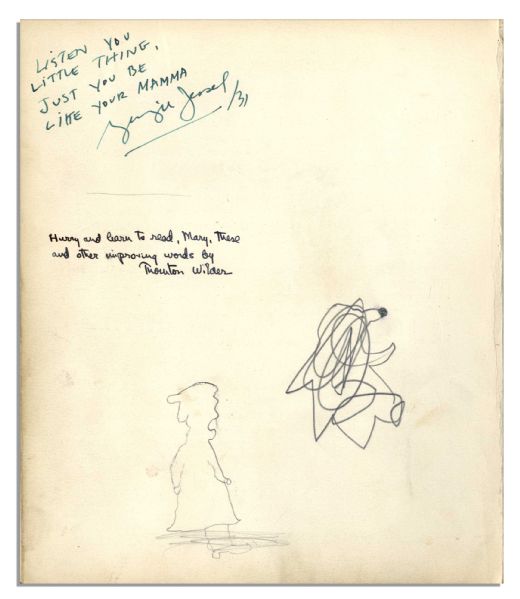 LISTEN YOU
LITTLE THING,
JUST YOU BE
LIKE YOUR MAMMA
Georgie Jessel /31
Hurry and learn to read, Mary, these
and other improving words by
Thornton Wilder